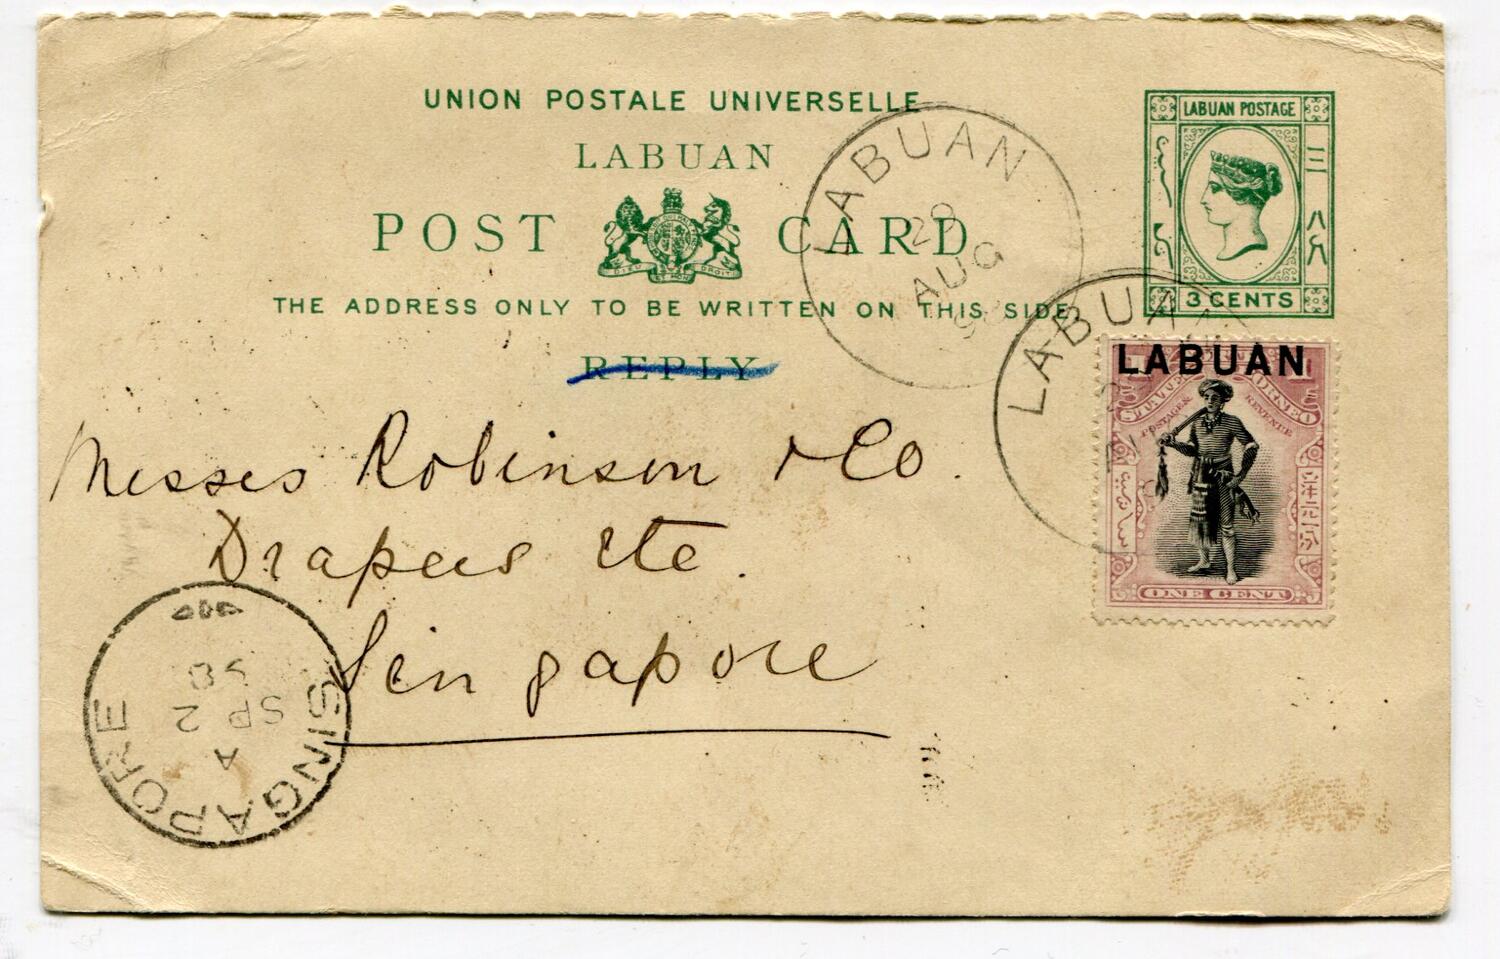 UNION POSTALE UNIVERSELLE
LABUAN
POST CARD
DIEU ET MON DROIT
THE ADDRESS ONLY TO BE WRITTEN ON THIS SIDE.
REPLY
LABUAN POSTAGE
三
八仙
3 CENTS
LABUAN
29
AUG
98
LABUAN
LABUAN
POSTAGE & REVENUE
ONE CENT
Messrs Robinson & Co.
Drapers Etc.
Singapore
SINGAPORE
A
SP 2
98